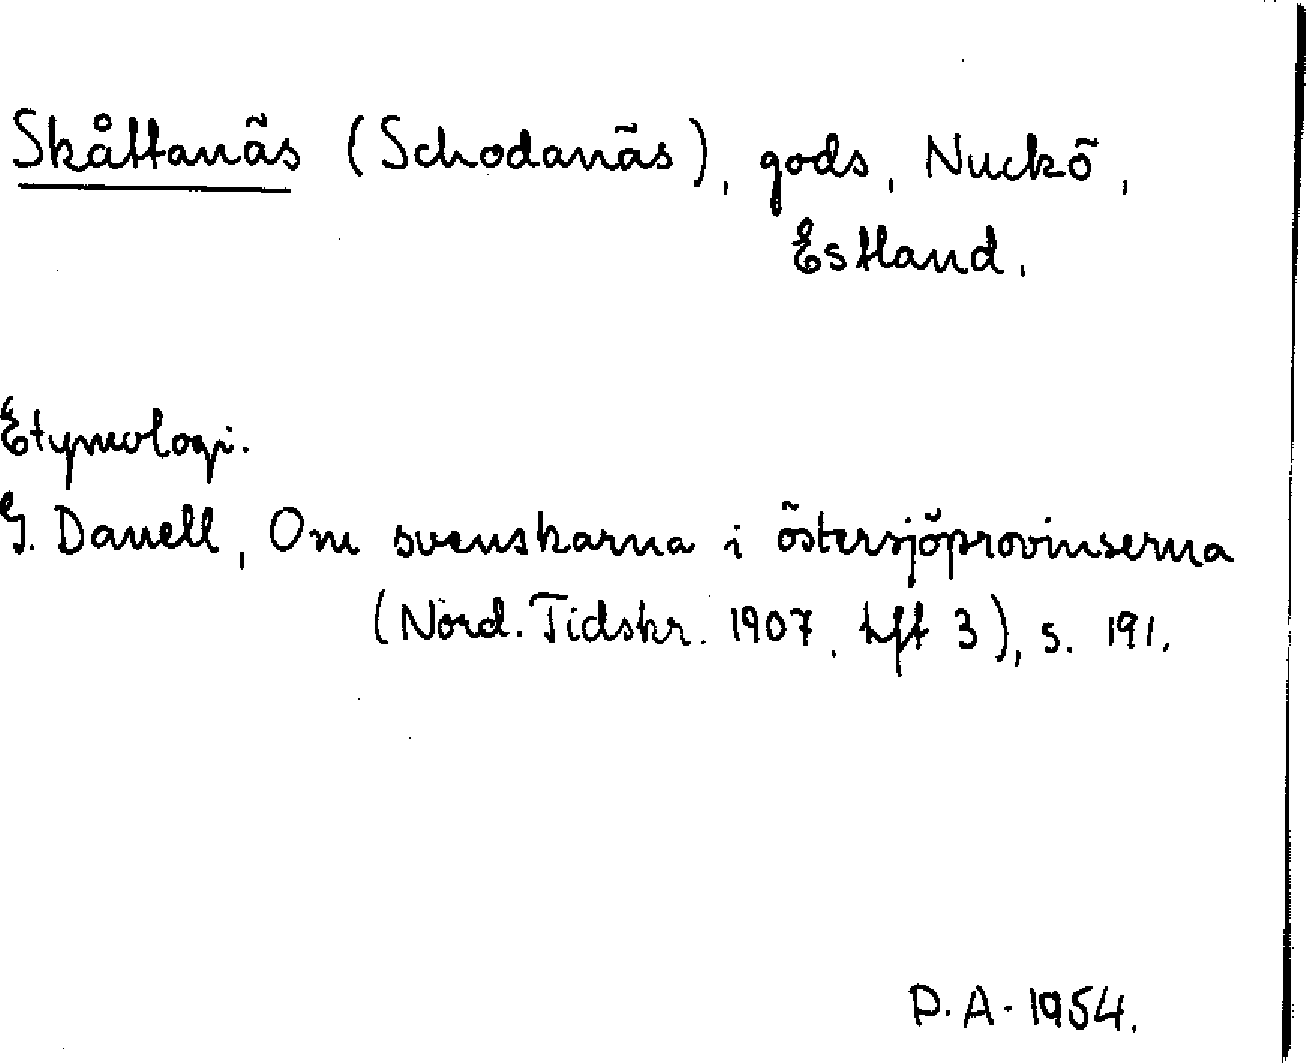 Skåttanäs (Schodanäs), gods, Nuckö,
Estland.
Etymologi.
G. Danell, Om svenskarna i östersjöprovinserna
(Nord. Tidskr. 1907, hft 3), s. 191.
P.A. 1954.